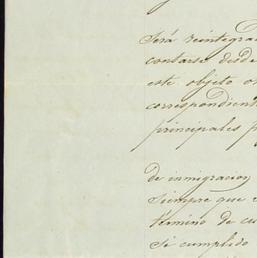 Será reintegra
contarse desde
este objeto o
correspondient
principales p
de inmigracion
siempre que
termino de cu
Si cumplido